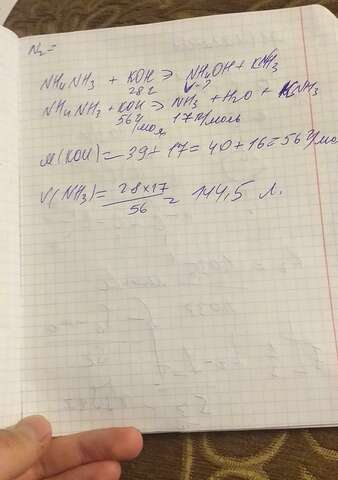 N2=
NH4NH3 + KOH → NH4OH + KNH3
28г V-?
NH4NH3 + KOH → NH3 + H2O + KNH3
56г/моль 17г/моль
M(KOH) = 39+17 = 40+16 = 56г/мо
V(NH3) = 28×17
56 = 144,5 л.